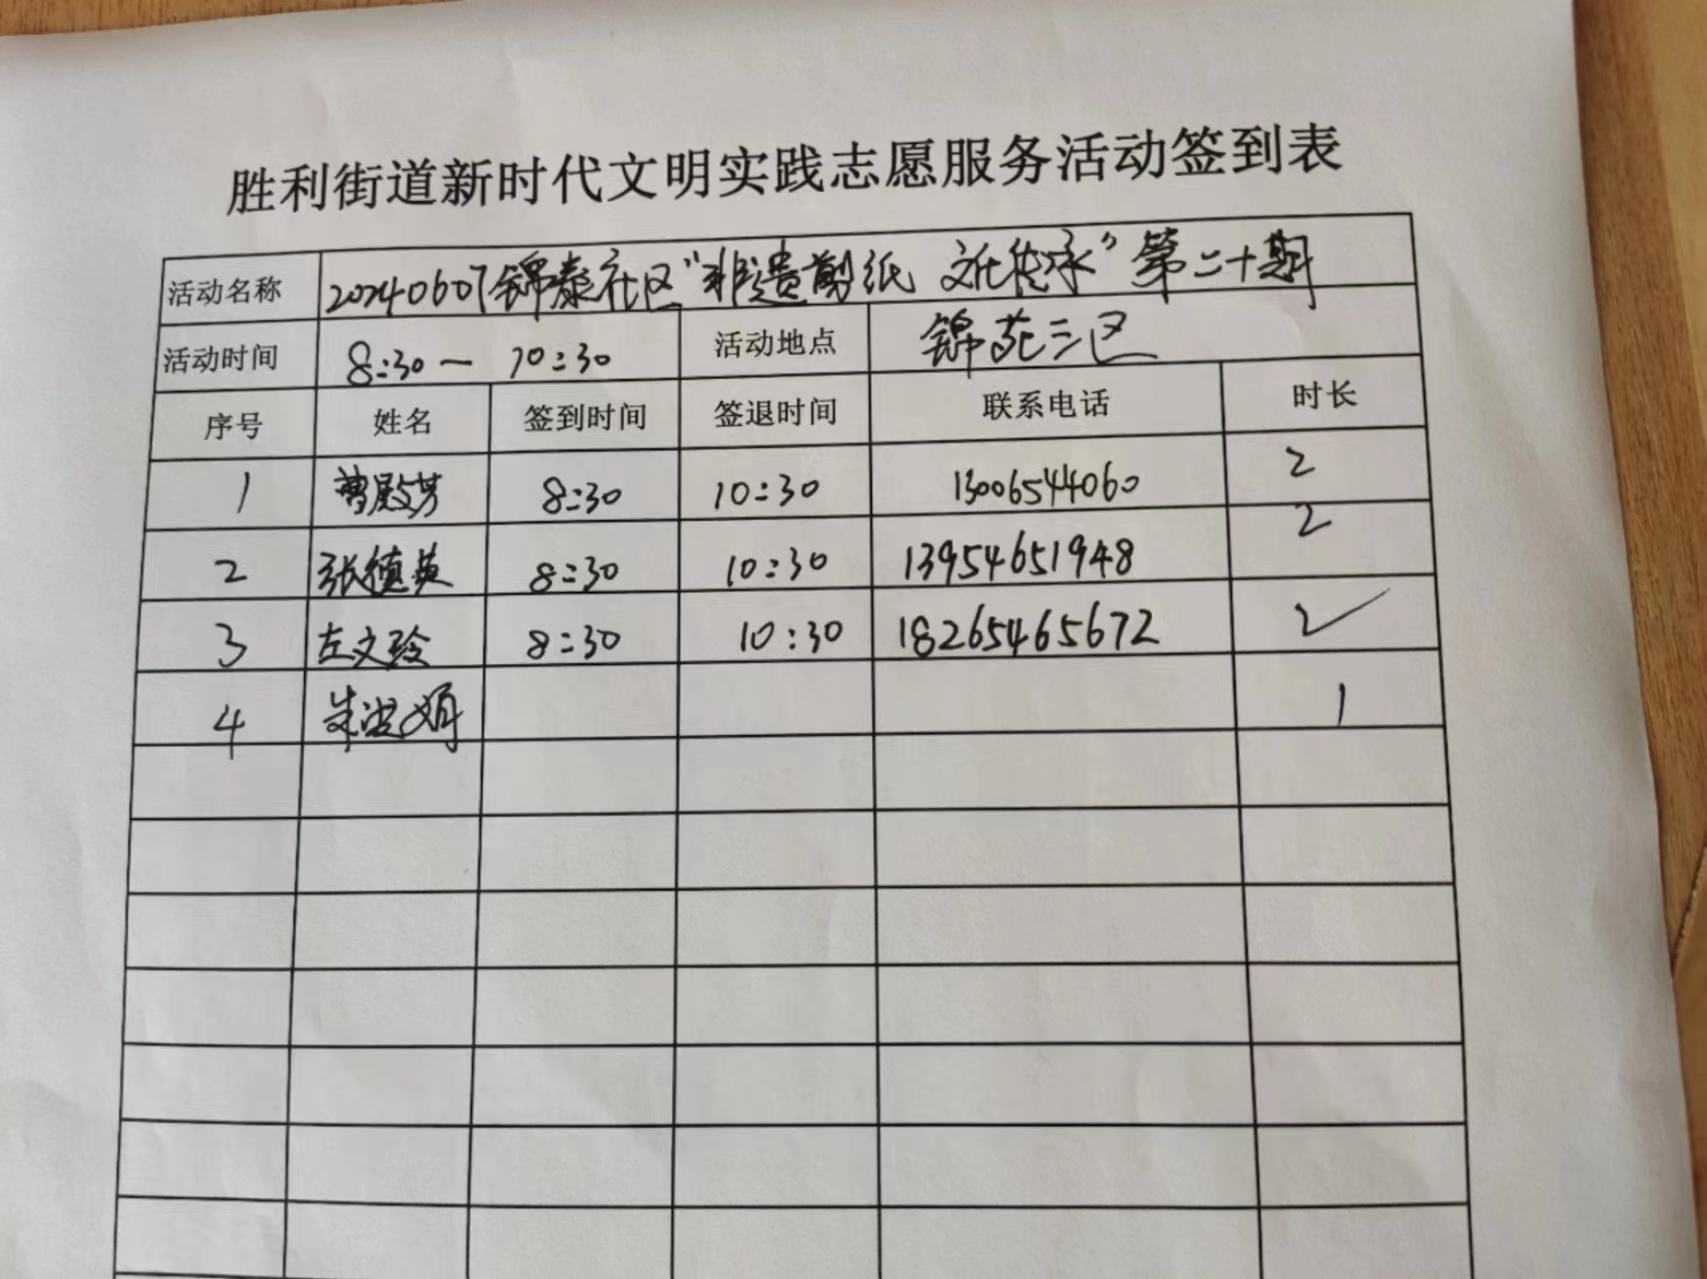 胜利街道新时代文明实践志愿服务活动签到表
活动名称 20240607锦泰社区“非遗剪纸 文化传承”第二十期
活动时间 8:30 — 10:30 活动地点 锦苑三区
序号 姓名 签到时间 签退时间 联系电话 时长
1 曹殿芳 8:30 10:30 13006544060 2
2 张德英 8:30 10:30 13954651948 2
3 左文玲 8:30 10:30 18265465672 2
4 1